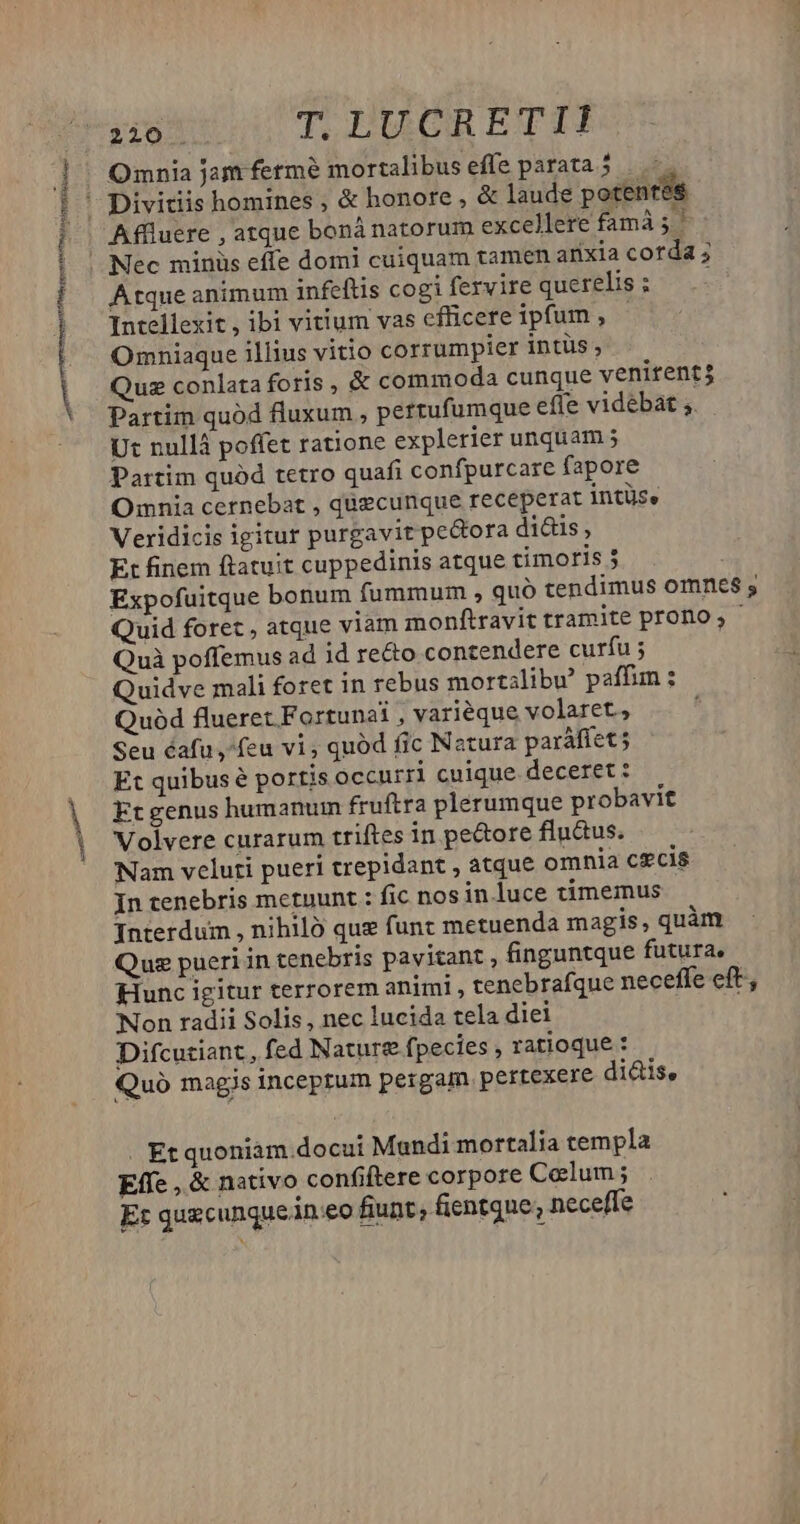 210 T. LUCRETII
Omnia jam fermè mortalibus eſſe parata ;
Divitiis homines , & honore , & laude potentes
Affluere , atque bonâ natorum excellere famâ ;
Nec minùs eſſe domi cuiquam tamen anxia corda ;
Atque animum infeſtis cogi ſervire querelis ;
Intellexit , ibi vitium vas efficere ipſum ,
Omniaque illius vitio corrumpier intùs ,
Quæ conlata foris , & commoda cunque venirent ;
Partim quòd fluxum , pertuſumque eſſe videbat ,
Ut nullâ poſſet ratione explerier unquam ;
Partim quòd tetro quaſi conſpurcare ſapore
Omnia cernebat , quæcunque receperat intùs.
Veridicis igitur purgavit pectora dictis ,
Et finem ſtatuit cuppedinis atque timoris ;
Expoſuitque bonum ſummum , quò tendimus omnes ,
Quid foret , atque viam monſtravit tramite prono ,
Quà poſſemus ad id recto contendere curſu ;
Quidve mali foret in rebus mortalibu' paſſim :
Quòd flueret Fortunaï , varièque volaret ,
Seu caſu , ſeu vi , quòd ſic Natura paràſſet ;
Et quibus è portis occurri cuique deceret :
Et genus humanum fruſtra plerumque probavit
Volvere curarum triſtes in pectore fluctus.
Nam veluti pueri trepidant , atque omnia cæcis
In tenebris metuunt : ſic nos in luce timemus
Interdum , nihilò quæ ſunt metuenda magis, quàm
Quæ pueri in tenebris pavitant , finguntque futura.
Hunc igitur terrorem animi , tenebraſque neceſſe eſt ,
Non radii Solis , nec lucida tela diei
Diſcutiant , ſed Naturæ ſpecies , ratioque :
Quò magis inceptum pergam pertexere dictis.
Et quoniam docui Mundi mortalia templa
Eſſe , & nativo conſiſtere corpore Cœlum ;
Et quæcunque in eo fiunt , fientque , neceſſe